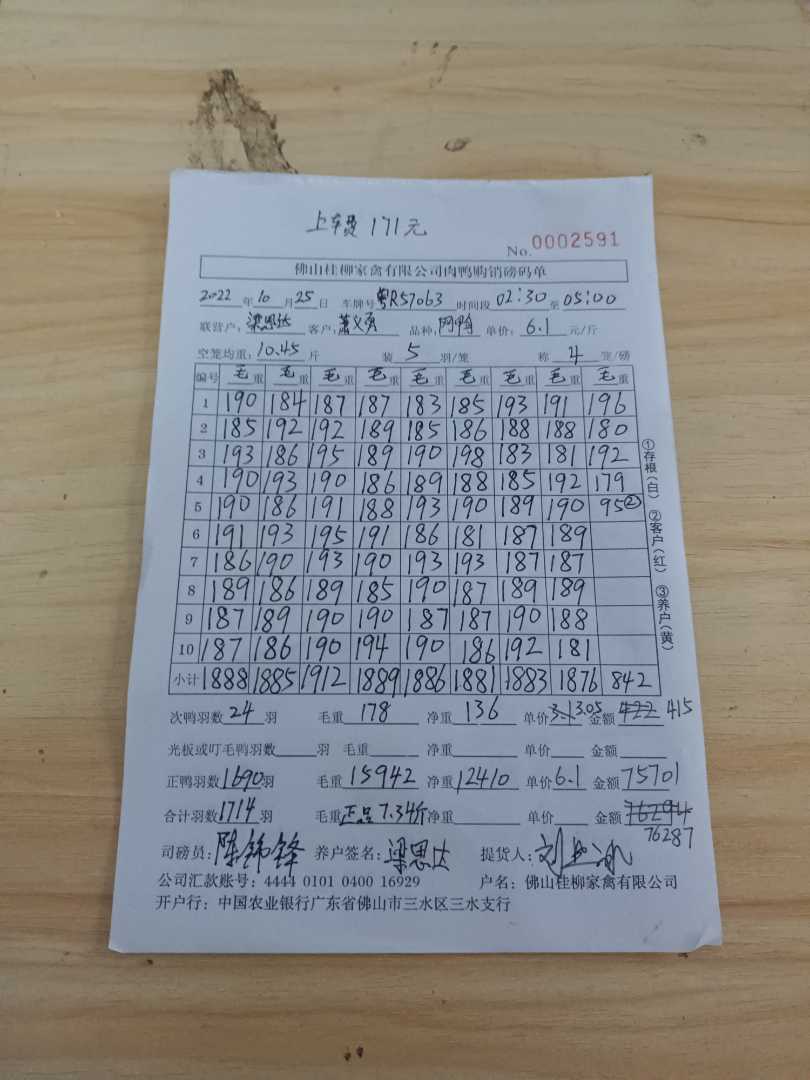 上车费 171元
No. 0002591
佛山桂柳家禽有限公司肉鸭购销磅码单
2022 年 10 月 25 日 车牌号 粤R57063 时间段 02:30 至 05:00
联营户: 梁思达 客户: 萧义勇 品种: 阿鸭 单价: 6.1 元/斤
空笼均重: 10.45 斤 装 5 羽/笼 称 4 笼/磅
编号 毛重 毛重 毛重 毛重 毛重 毛重 毛重 毛重 毛重
1 190 184 187 187 183 185 193 191 196
2 185 192 192 189 185 186 188 188 180
3 193 186 195 189 190 198 183 181 192
4 190 193 190 186 189 188 185 192 179
5 190 186 191 188 193 190 189 190 95②
6 191 193 195 191 186 181 187 189
7 186 190 193 190 193 193 187 187
8 189 186 189 185 190 187 189 189
9 187 189 190 190 187 187 190 188
10 187 186 190 194 190 186 192 181
小计 1888 1885 1912 1889 1886 1881 1883 1876 842
①存根(白) ②客户(红) ③养户(黄)
次鸭羽数 24 羽 毛重 178 净重 136 单价 3.1 3.05 金额 422 415
光板或叮毛鸭羽数 羽 毛重 净重 单价 金额
正鸭羽数 1690 羽 毛重 15942 净重 12410 单价 6.1 金额 75701
合计羽数 1714 羽 毛重 正品 7.34斤 净重 单价 金额 76294
76287
司磅员: 陈锦锋 养户签名: 梁思达 提货人: 刘
公司汇款账号: 4444 0101 0400 16929 户名: 佛山桂柳家禽有限公司
开户行: 中国农业银行广东省佛山市三水区三水支行